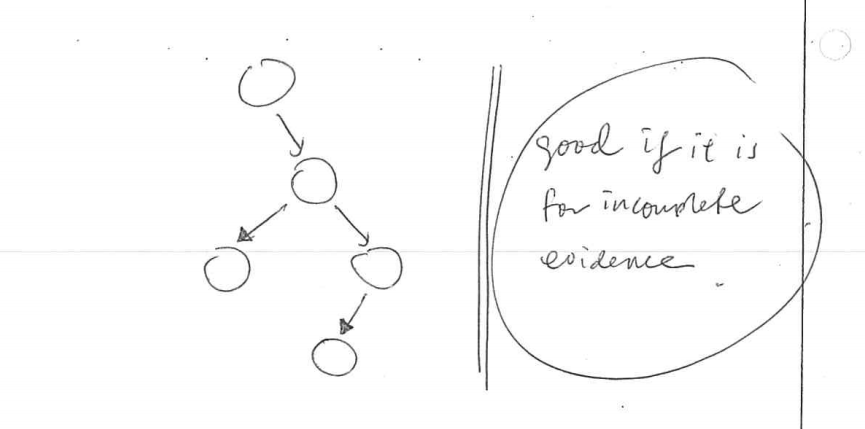 good if it is
for incomplete
evidence